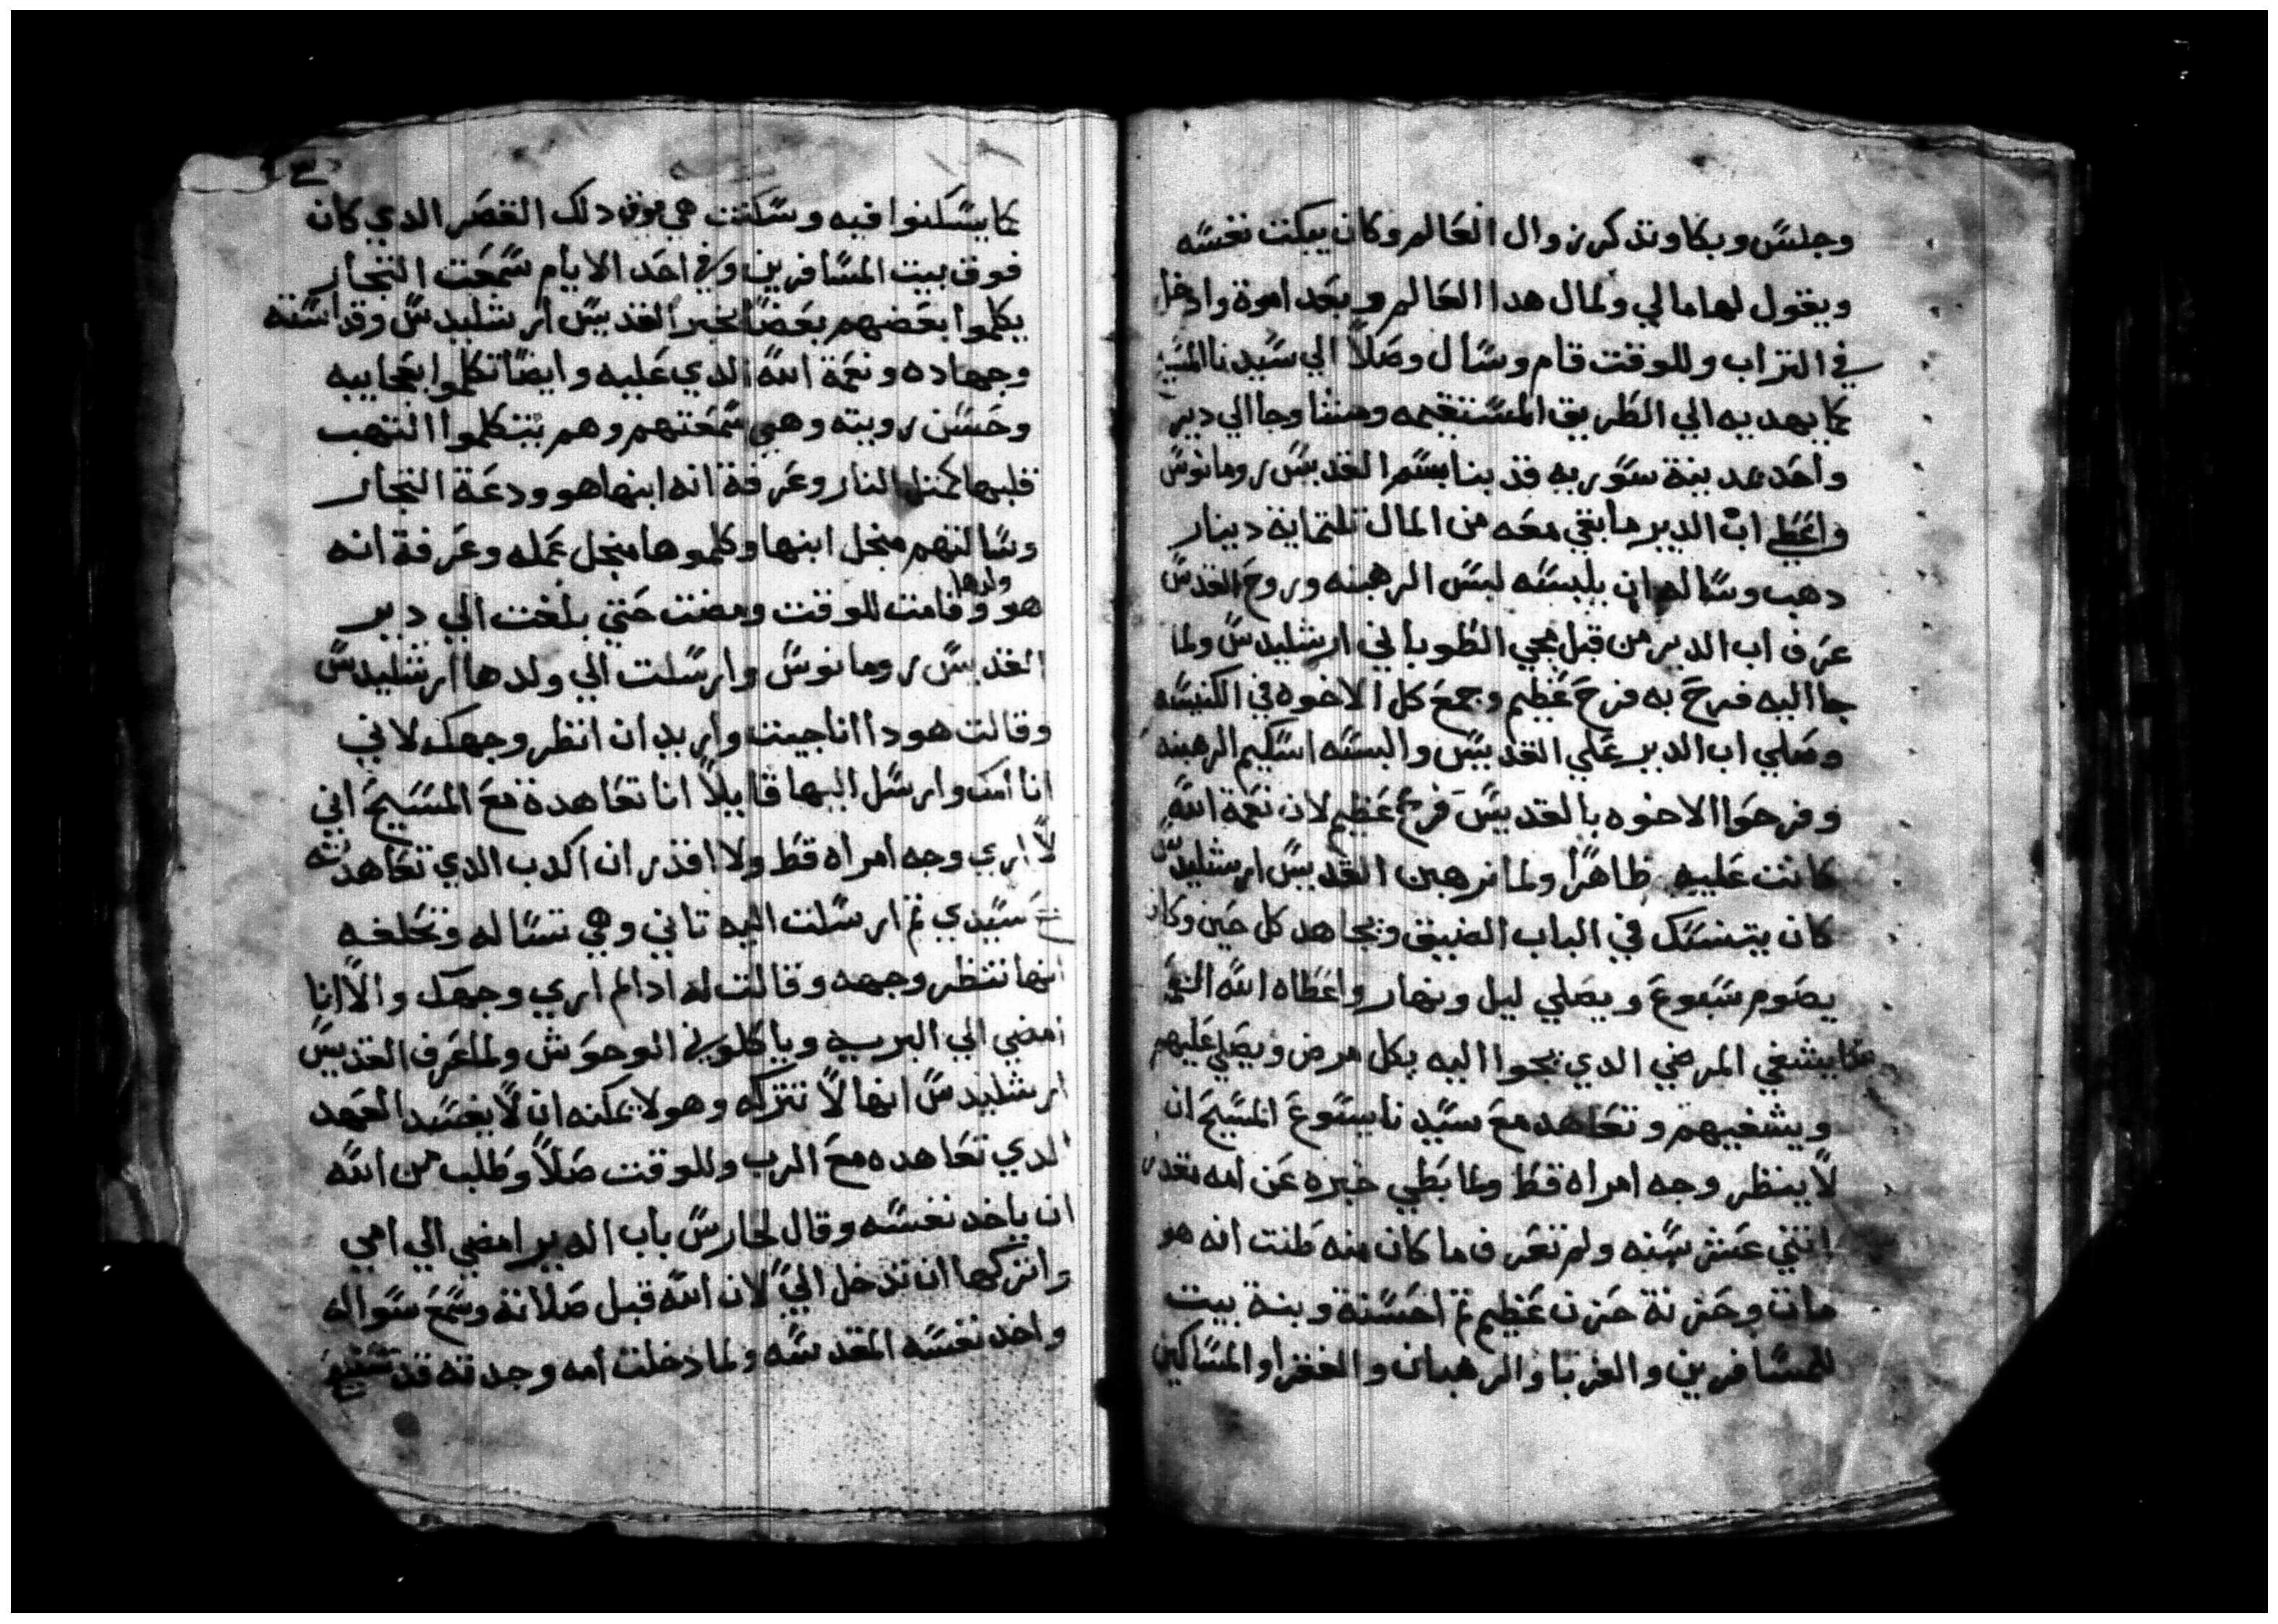 وجلس وبكا وتذكر زوال العالم وكان يبكت نفسه
ويقول لها مالي ولمال هدا العالم وبعد اموة وادخل
في التراب وللوقت قام وسال وصلا الي سيدنا المسيح
كما يهديه الي الطريق المستقيمه ومشا وجا الي دير
واحد بمدينة سوريه قد بنا بسم القديس رومانوس
واعطي اب الدير ما بقي معه من المال تلتماية دينار
دهب وساله ان يلبسه لبس الرهبنه وروح القدس
عرف اب الدير من قبل مجي الطوباني ارشليدس ولما
جا اليه فرح به فرح عظيم وجمع كل الاخوه في الكنيسه
وصلي اب الدير علي القديس والبسه اسكيم الرهبنه
وفرحوا الاخوه بالقديس فرح عظيم لان نعمة الله
كانت عليه ظاهرا ولما ترهبن القديس ارشليدس
كان يتنسك في الباب الضيق ويجاهد كل حين وكان
يصوم سبوع ويصلي ليل ونهار واعطاه الله النعمه
كما يشفي المرضي الدي يجوا اليه بكل مرض ويصلي عليهم
ويشفيهم وتعاهد مع سيدنا يسوع المسيح ان
لا ينظر وجه امراه قط ولما بطي خبره عن امه مقدار
اتني عشر سنه ولم تعرف ما كان منه ظنت انه هو
مات وحزنة حزن عظيم تم احسنة وبنة بيت
للمسافرين والغربا والرهبان والفقرا والمساكين
كما يسكنوا فيه وسكنت هي فوق دلك القصر الدي كان
فوق بيت المسافرين وفي احد الايام سمعت التجار
يكلموا بعضهم بعضا بخبر القديس ارشليدس وقداسته
وجهاده ونعمة الله الدي عليه وايضا تكلموا بعجايبه
وحسن رويته وهي سمعتهم وهم يتكلموا التهب
قلبها كمتل النار وعرفة انه ابنها هو ودعة التجار
وسالتهم منجل ابنها وكلموها منجل عمله وعرفة انه
هو ولدها وقامت للوقت ومضت حتي بلغت الي دير
القديس رومانوس وارسلت الي ولدها ارشليدس
وقالت هودا انا جيت واريد ان انظر وجهك لاني
انا امك وارسل اليها قايلا انا تعاهدة مع المسيح اني
لا اري وجه امراه قط ولا اقدر ان اكدب الدي تعاهدته
مع سيدي تم ارسلت اليه تاني وهي تساله وتحلفه
انها تنظر وجهه وقالت له ادا لم اري وجهك والا انا
امضي الي البريه وياكلوني الوحوش ولما عرف القديس
ارشليدس انها لا تتركه وهو لا يمكنه ان لا يفسد العهد
الدي تعاهده مع الرب وللوقت صلا وطلب من الله
ان ياخد نفسه وقال لحارس باب الدير امضي الي امي
واتركها ان تدخل الي لان الله قبل صلاته وسمع سواله
واخد نفسه المقدسه ولما دخلت امه وجدته قد تنيح